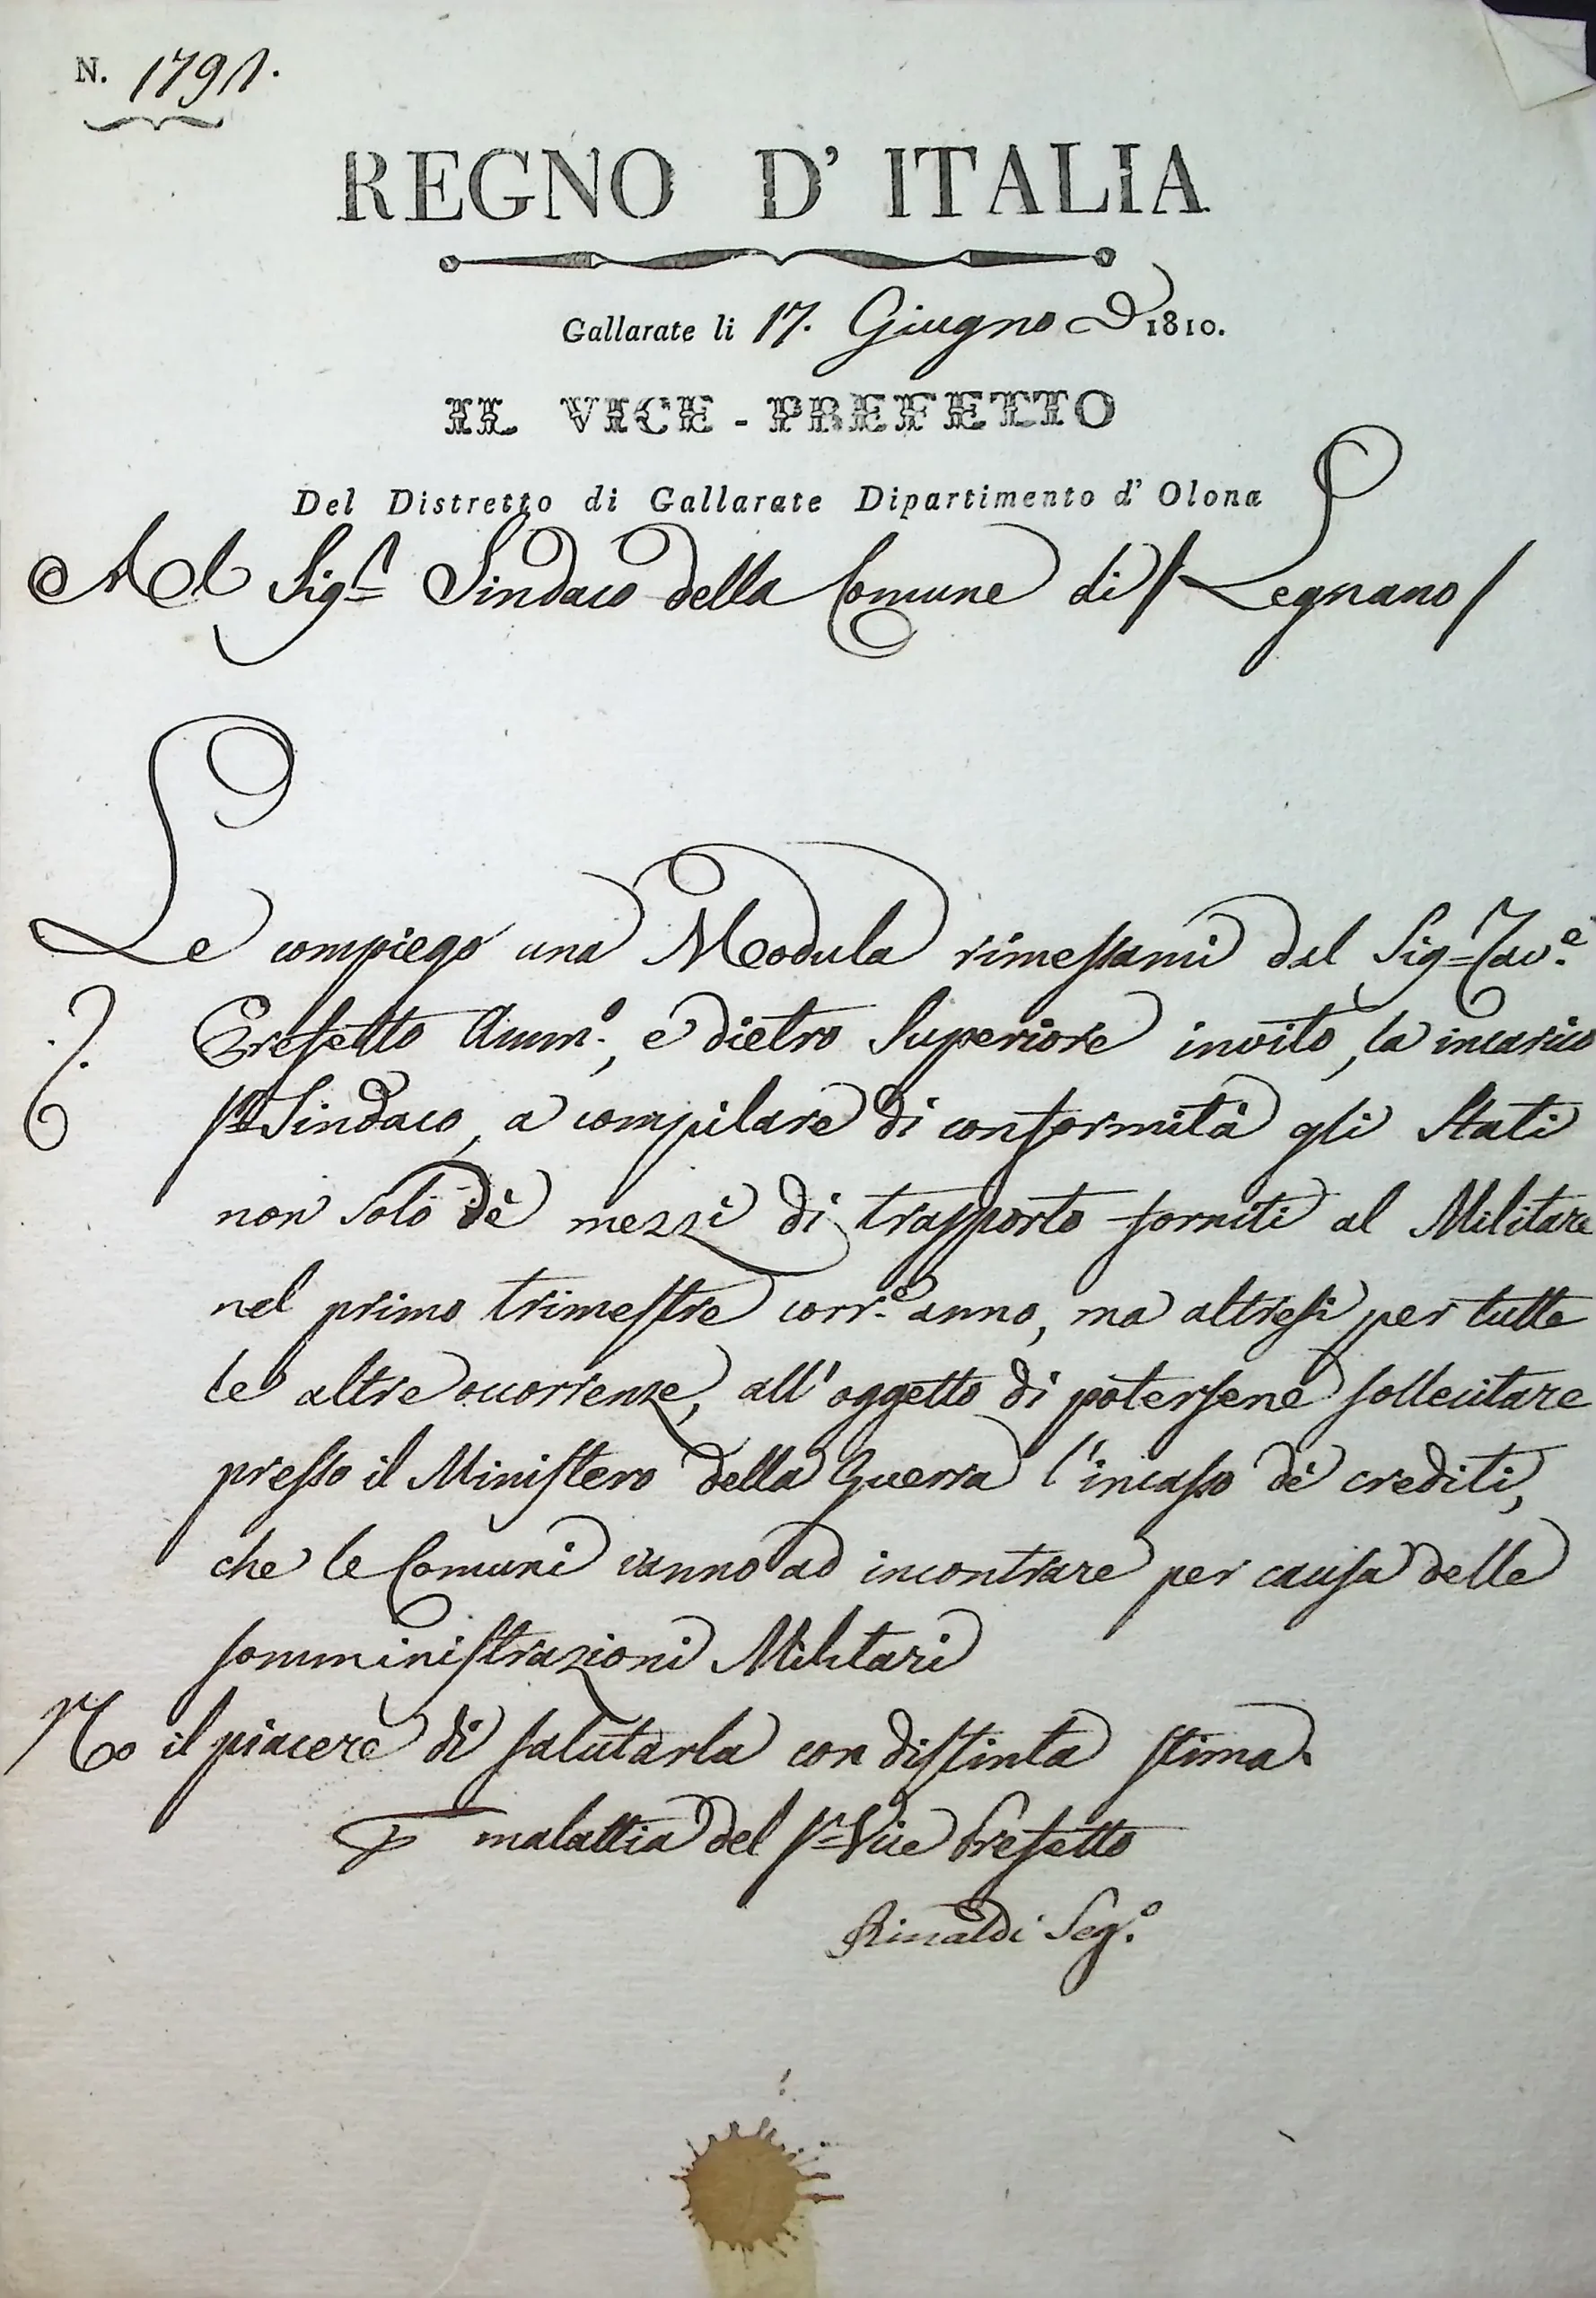 N. 1791.
REGNO D' ITALIA
Gallarate li 17. Giugno 1810.
IL VICE - PREFETTO
Del Distretto di Gallarate Dipartimento d' Olona
Al Sig.r Sindaco della Comune di Legnano
Le compiego una Modula rimessami dal Sig. Cav.e
Prefetto Amm.o, e dietro Superiore invito, la incarico
Sr Sindaco, a compilare di conformità gli Stati
non solo dè mezzi di trapporto forniti al Militare
nel primo trimestre corr.e anno, ma altresì per tutte
le altre occorrenze, all' oggetto di potersene sollecitare
presso il Ministero della Guerra l'incasso dè crediti,
che le Comuni vanno ad incontrare per causa delle
somministrazioni Militari
Ho il piacere di salutarla con distinta stima.
P malattia del Sr Vice Prefetto
Rinaldi Seg.o